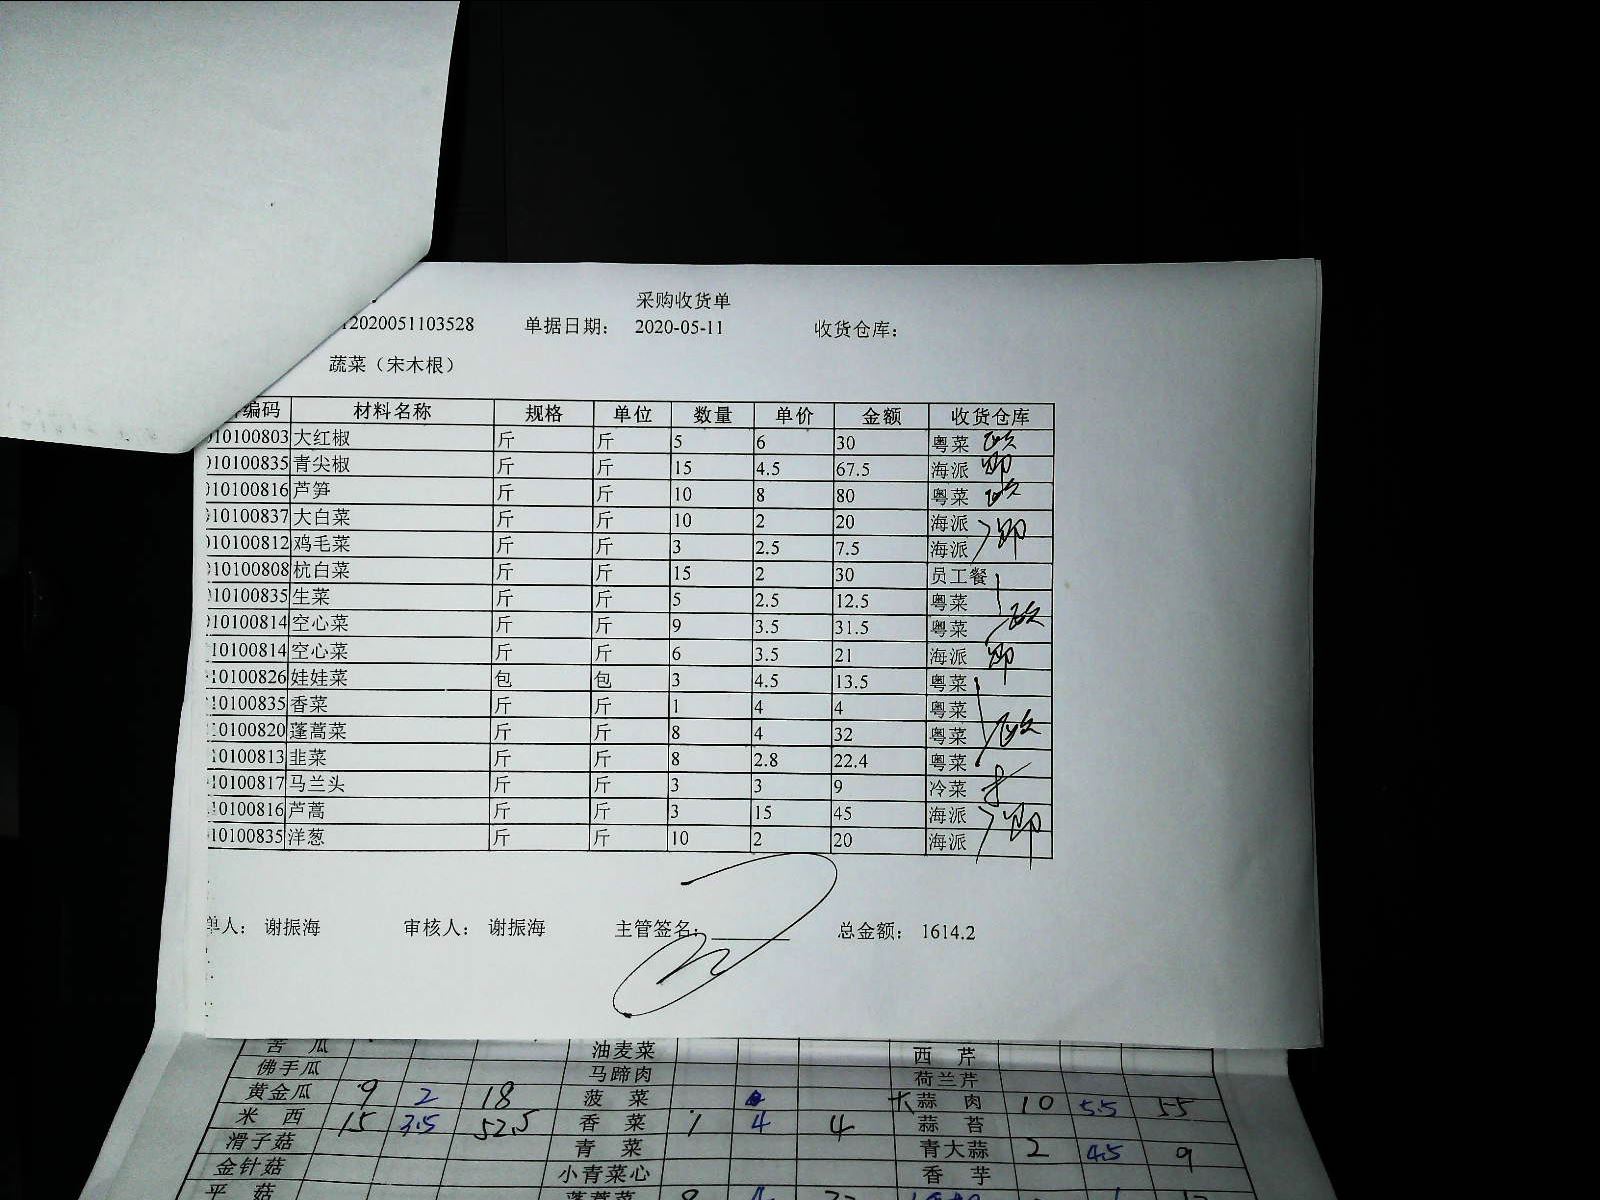 采购收货单
12020051103528 单据日期： 2020-05-11 收货仓库：
蔬菜（宋木根）
编码 材料名称 规格 单位 数量 单价 金额 收货仓库
10100803 大红椒 斤 斤 5 6 30 粤菜
10100835 青尖椒 斤 斤 15 4.5 67.5 海派
10100816 芦笋 斤 斤 10 8 80 粤菜
10100837 大白菜 斤 斤 10 2 20 海派
10100812 鸡毛菜 斤 斤 3 2.5 7.5 海派
10100808 杭白菜 斤 斤 15 2 30 员工餐
10100835 生菜 斤 斤 5 2.5 12.5 粤菜
10100814 空心菜 斤 斤 9 3.5 31.5 粤菜
10100814 空心菜 斤 斤 6 3.5 21 海派
10100826 娃娃菜 包 包 3 4.5 13.5 粤菜
10100835 香菜 斤 斤 1 4 4 粤菜
10100820 蓬蒿菜 斤 斤 8 4 32 粤菜
10100813 韭菜 斤 斤 8 2.8 22.4 粤菜
10100817 马兰头 斤 斤 3 3 9 冷菜
10100816 芦蒿 斤 斤 3 15 45 海派
10100835 洋葱 斤 斤 10 2 20 海派
单人： 谢振海 审核人： 谢振海 主管签名： 总金额： 1614.2
苦瓜 油麦菜 西芹
佛手瓜 马蹄肉 荷兰芹
黄金瓜 9 2 18 菠菜 蒜肉 10 5.5 55
米西 15 3.5 52.5 香菜 1 4 4 蒜苔
滑子菇 青菜 青大蒜 2 4.5 9
金针菇 小青菜心 香芋
平菇 蓬蒿菜